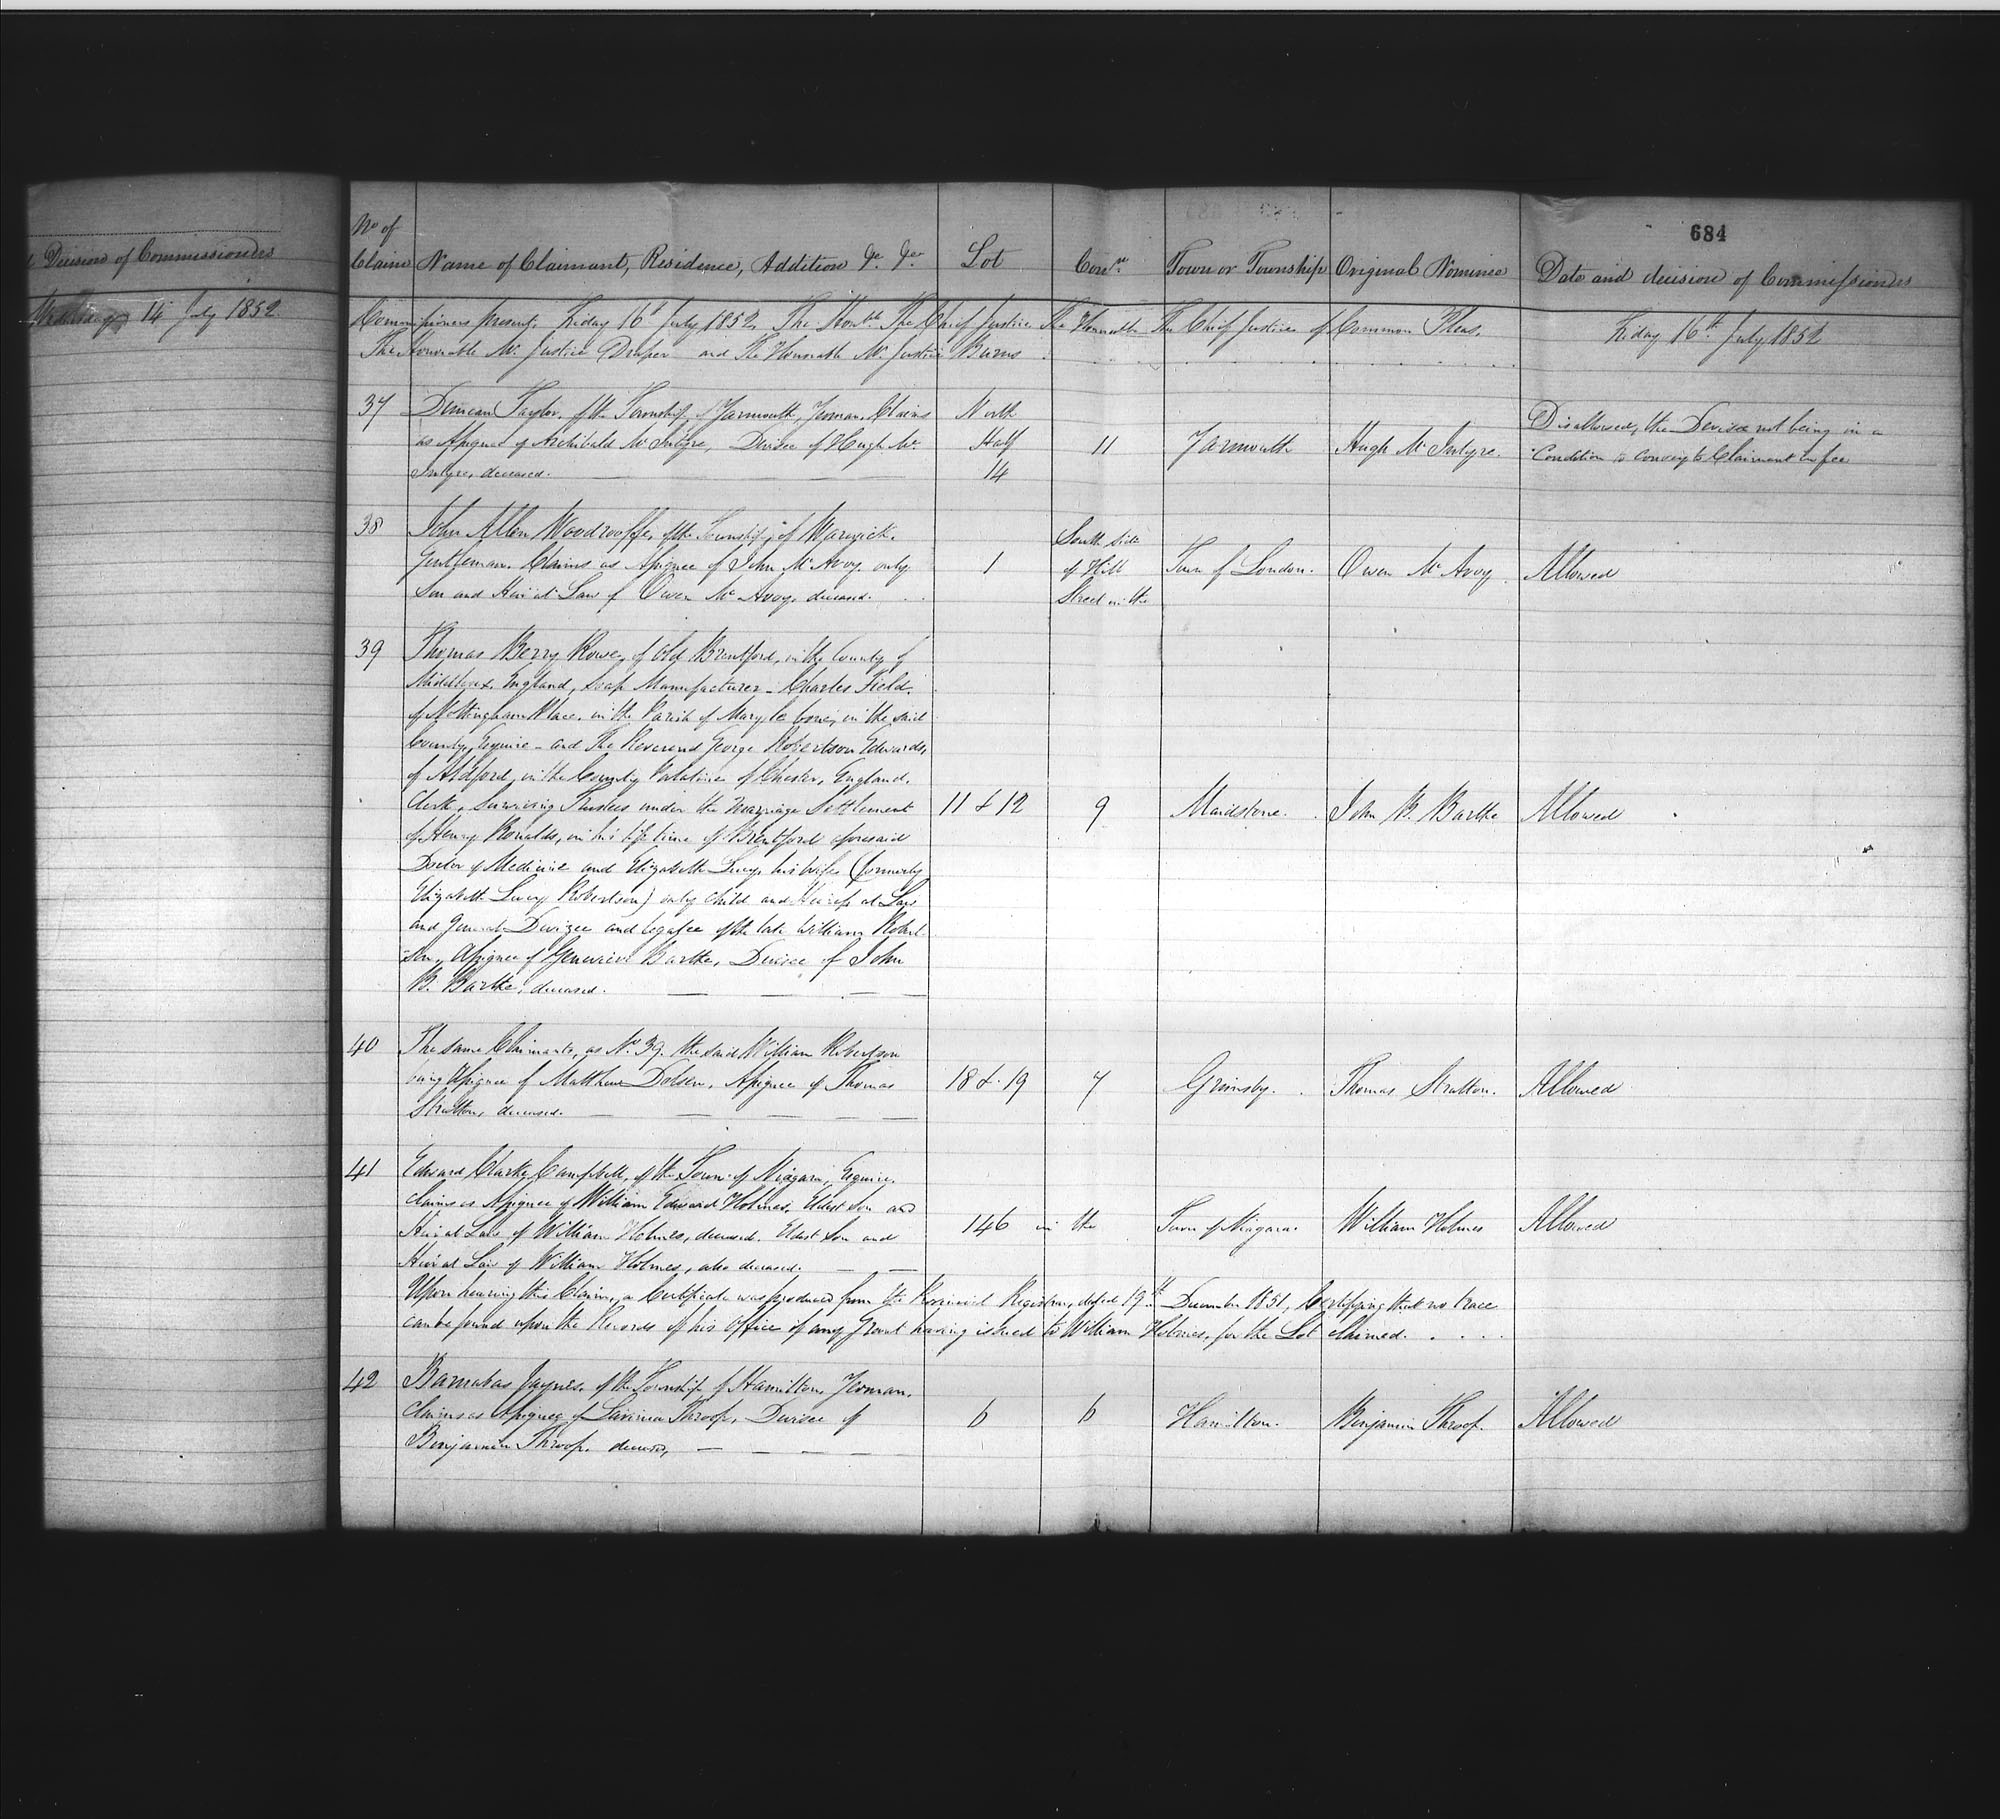 Decision of Commissioners
Wednesday 14 July 1852.
684
No of
Claim Name of Claimant, Residence, Addition &c. &ca Lot Conn. Town or Township Original Nominee Date and decision of Commissioners
Commissioners present, Friday 16th July 1852. The Honble The Chief Justice The Honorable The Chief Justice of Common Pleas, Friday 16th July 1852
The Honorable Mr. Justice Draper and The Honorable Mr. Justice Burns
37 Duncan Taylor, of the Township of Yarmouth, Yeoman, Claims North
as Assignee of Archibald McIntyre, Devisee of Hugh Mc Half 11 Yarmouth Hugh McIntyre. Disallowed, the Devisee not being in a
Intyre, deceased. 14 Condition to convey to Claimant in fee
38 John Allen Woodrooffe, of the Township of Warwick, South side
Gentleman. Claims as Assignee of John McAvoy only 1 of Hill Town of London. Owen McAvoy Allowed
Son and Heir at Law of Owen McAvoy, deceased. Street in the
39 Thomas Berry Rowe, of Old Brentford, in the County of
Middlesex, England, Soap Manufacturer - Charles Field,
of Nottingham Place, in the Parish of Mary le bone, in the said
County, Esquire - and The Reverend George Robertson Edwards,
of Aldford, in the County Palatine of Chester, England,
Clerk, Surviving Trustees under the Marriage Settlement 11 & 12 9 Maidstone. John B. Barthe Allowed
of Henry Ronalds, in his life time of Brentford aforesaid
Doctor of Medicine and Elizabeth Lucy his wife (formerly
Elizabeth Lucy Robertson) only child and Heiress at Law
and General Devisee and legatee of the late William Robert-
-son, Assignee of Genevieve Barthe, Devisee of John
B. Barthe, deceased.
40 The same Claimants, as No. 39. the said William Robertson
being Assignee of Matthew Dolsen, Assignee of Thomas 18 & 19 7 Grimsby. Thomas Stratton. Allowed
Stratton, deceased.
41 Edward Clarke Campbell, of the Town of Niagara, Esquire,
Claims as Assignee of William Edward Holmes, Eldest Son and
Heir at Law of William Holmes, deceased. Eldest Son and 146 in the Town of Niagara. William Holmes Allowed
Heir at Law of William Holmes, also deceased.
Upon hearing this Claim, a Certificate was produced from the Provincial Registrar, dated 19th December 1851, Certifying that no trace
can be found upon the Records of his Office of any Grant having issued to William Holmes, for the Lot claimed.
42 Barnabas Jaynes, of the Township of Hamilton, Yeoman,
Claims as Assignee of Lavinia Throop, Devisee of 6 6 Hamilton. Benjamin Throop. Allowed
Benjamin Throop, deceased,